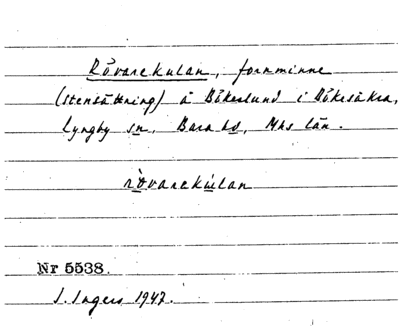 Rövarekulan, fornminne
(stensättning) å Bökeslund i Bökesåkra,
Lyngby sn, Bara hd, Mhs län.
rövarekulan
Nr 5538.
I. Ingers 1942.